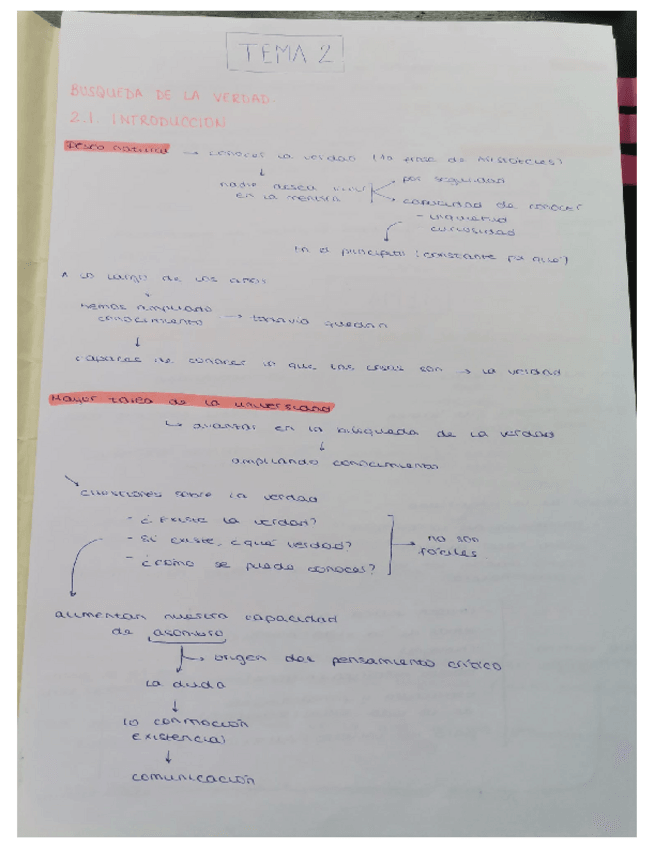 TEMA 2
BUSQUEDA DE LA VERDAD.
2.1. INTRODUCCION
Deseo natural → conocer la verdad (la frase de Aristóteles)
↓
nadie desea vivir
en la mentira
por seguridad
capacidad de conocer
- inquietud
curiosidad
en el principito: constante
A lo largo de los años
↓
hemos ampliado
conocimiento → todavía quedan
↓
capaces de conocer lo que las cosas son → la verdad
Mayor tarea de la universidad
↳ avanzar en la búsqueda de la verdad
↓
ampliando conocimiento
cuestiones sobre la verdad
- ¿Existe la verdad?
- Si existe, ¿qué verdad?
- ¿cómo se puede conocer?
→ no son
fáciles
aumentan nuestra capacidad
de asombro
↳ origen del pensamiento crítico
la duda
↓
la conmoción
existencial
↓
comunicación